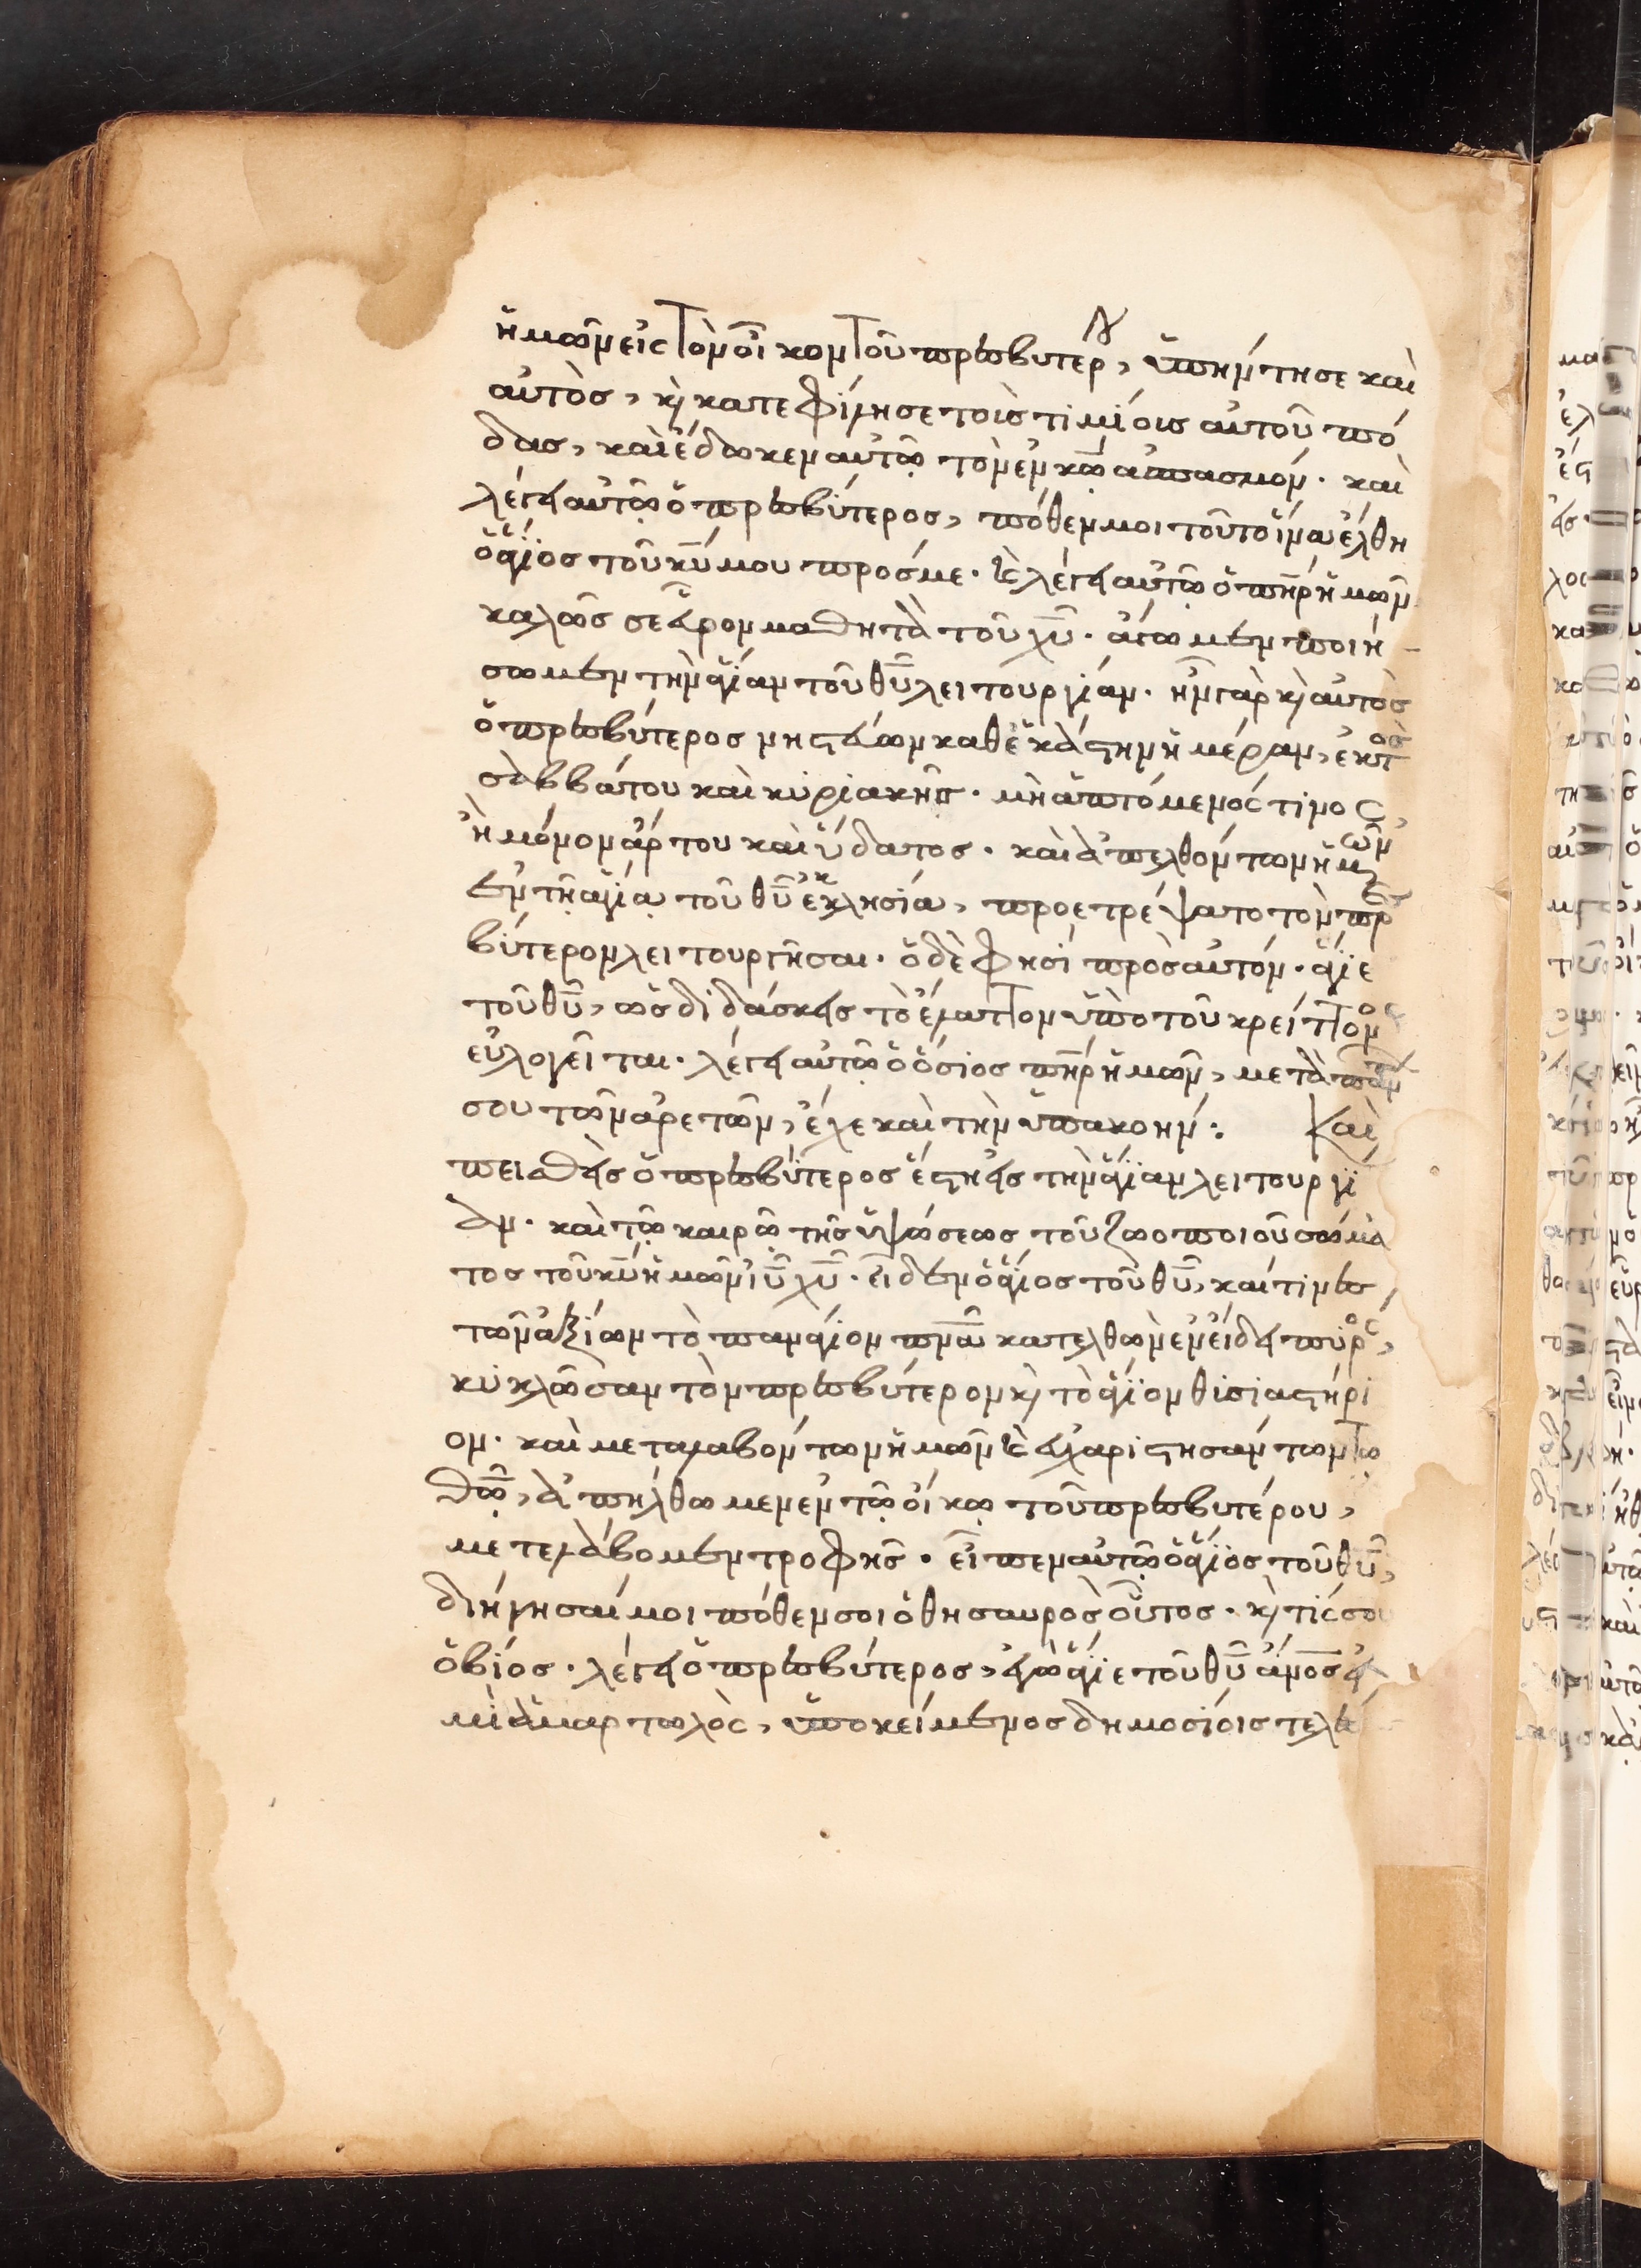 ἡμῶν εἰς τὸν οἶκον τοῦ πρεσβυτέρου, ὑπήντησε καὶ
αὐτὸς, κ̀ κατεφίλησε τοὶς τιμίοις αὐτοῦ πό
δας, καὶ ἔδωκεν αὐτῶ τὸν ἐν κω ἀσπασμόν. καὶ
λέγει αὐτῶ ὁ πρεσβύτερος, πόθεν μοι τοῦτο ἵνα ἔλθη
ὁ ἅγιος τοῦ κυ μου προσμε. κ̀ λέγει αὐτῶ ὁ πηρ ἡμῶν
καλῶς σε εὗρον μαθητὰ τοῦ χυ. ἄγωμεν ποιή
σωμεν τὴν ἁγίαν τοῦ θυ λειτουργίαν. ἦν γὰρ κ̀ αὐτὸς
ὁ πρεσβύτερος νηστεύων καθεκάστην ἡμέραν, ἐκτὸς
σαββάτου καὶ κυριακῆς. μὴ ἁπτόμενός τινος
ἢ μόνον ἄρτου καὶ ὕδατος. καὶ ἀπελθόντων ἡμῶν
ἐν τῆ ἁγία τοῦ θυ ἐκκλησία, προετρέψατο τὸν πρεσ
βύτερον λειτουργῆσαι. ὁ δὲ φησὶ πρὸς αὐτόν. ἅγιε
τοῦ θυ, ὡς διδάσκεις τὸ ἔλαττον ὑπὸ τοῦ κρείττονος
εὐλογεῖται. λέγει αὐτῶ ὁ ὅσιος πηρ ἡμῶν, μετὰ πάντων
σου τῶν ἀρετῶν, ἔχε καὶ τὴν ὑπακοήν: Καὶ
πεισθεὶς ὁ πρεσβύτερος ἔστη εἰς τὴν ἁγίαν λειτουργί
αν. καὶ τῶ καιρῶ τῆς ὑψώσεως τοῦ ζωοποιοῦ σώμα
τος τοῦ κυ ἡμῶν ιυ χυ. εἶδεν ὁ ἅγιος τοῦ θυ, καὶ τινες
τῶν ἀξίων τὸ πανάγιον πνα κατελθὼν ἐν εἴδει πυρός,
κυκλῶσαν τὸν πρεσβύτερον κ̀ τὸ ἅγιον θισιαστήρι
ον. καὶ μεταλαβόντων ἡμῶν κ̀ εὐχαριστησάντων τω
θω, ἀπήλθωμεν ἐν τῶ οἴκω τοῦ πρεσβυτέρου,
μετελάβομεν τροφῆς. εἶπεν αὐτῶ ὁ ἅγιος τοῦ θυ,
διήγησαί μοι πόθεν σοι ὁ θησαυρὸς οὗτος. κ̀ τίς σου
ὁ βίος. λέγει ὁ πρεσβύτερος, ἐγὼ ἅγιε τοῦ θυ ανος εἰ
μὶ ἁμαρτωλὸς, ὑποκείμενος δημοσίοις τελε